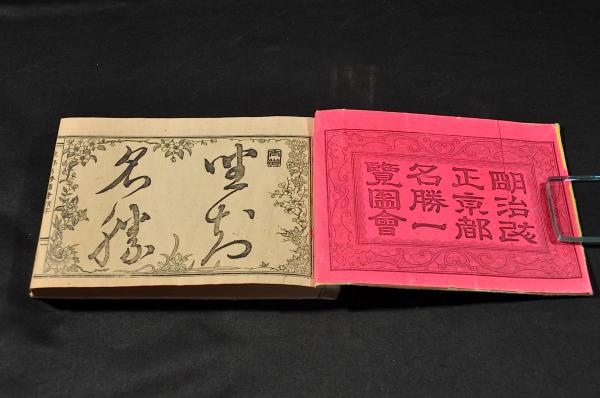 明治改
正京都
名勝一
覽圖會
坐知
名勝